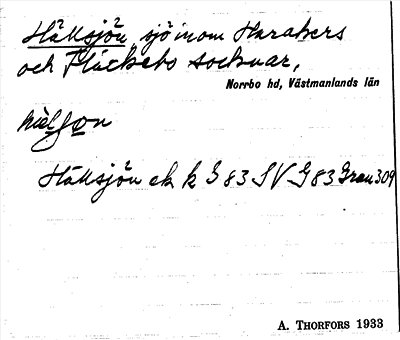 Hällsjön sjö inom Harakers
och Fläckebo socknar,
Norrbo hd, Västmanlands län
Hällsjön ek k G 83 SV G 83 Gran 309
A. THORFORS 1933